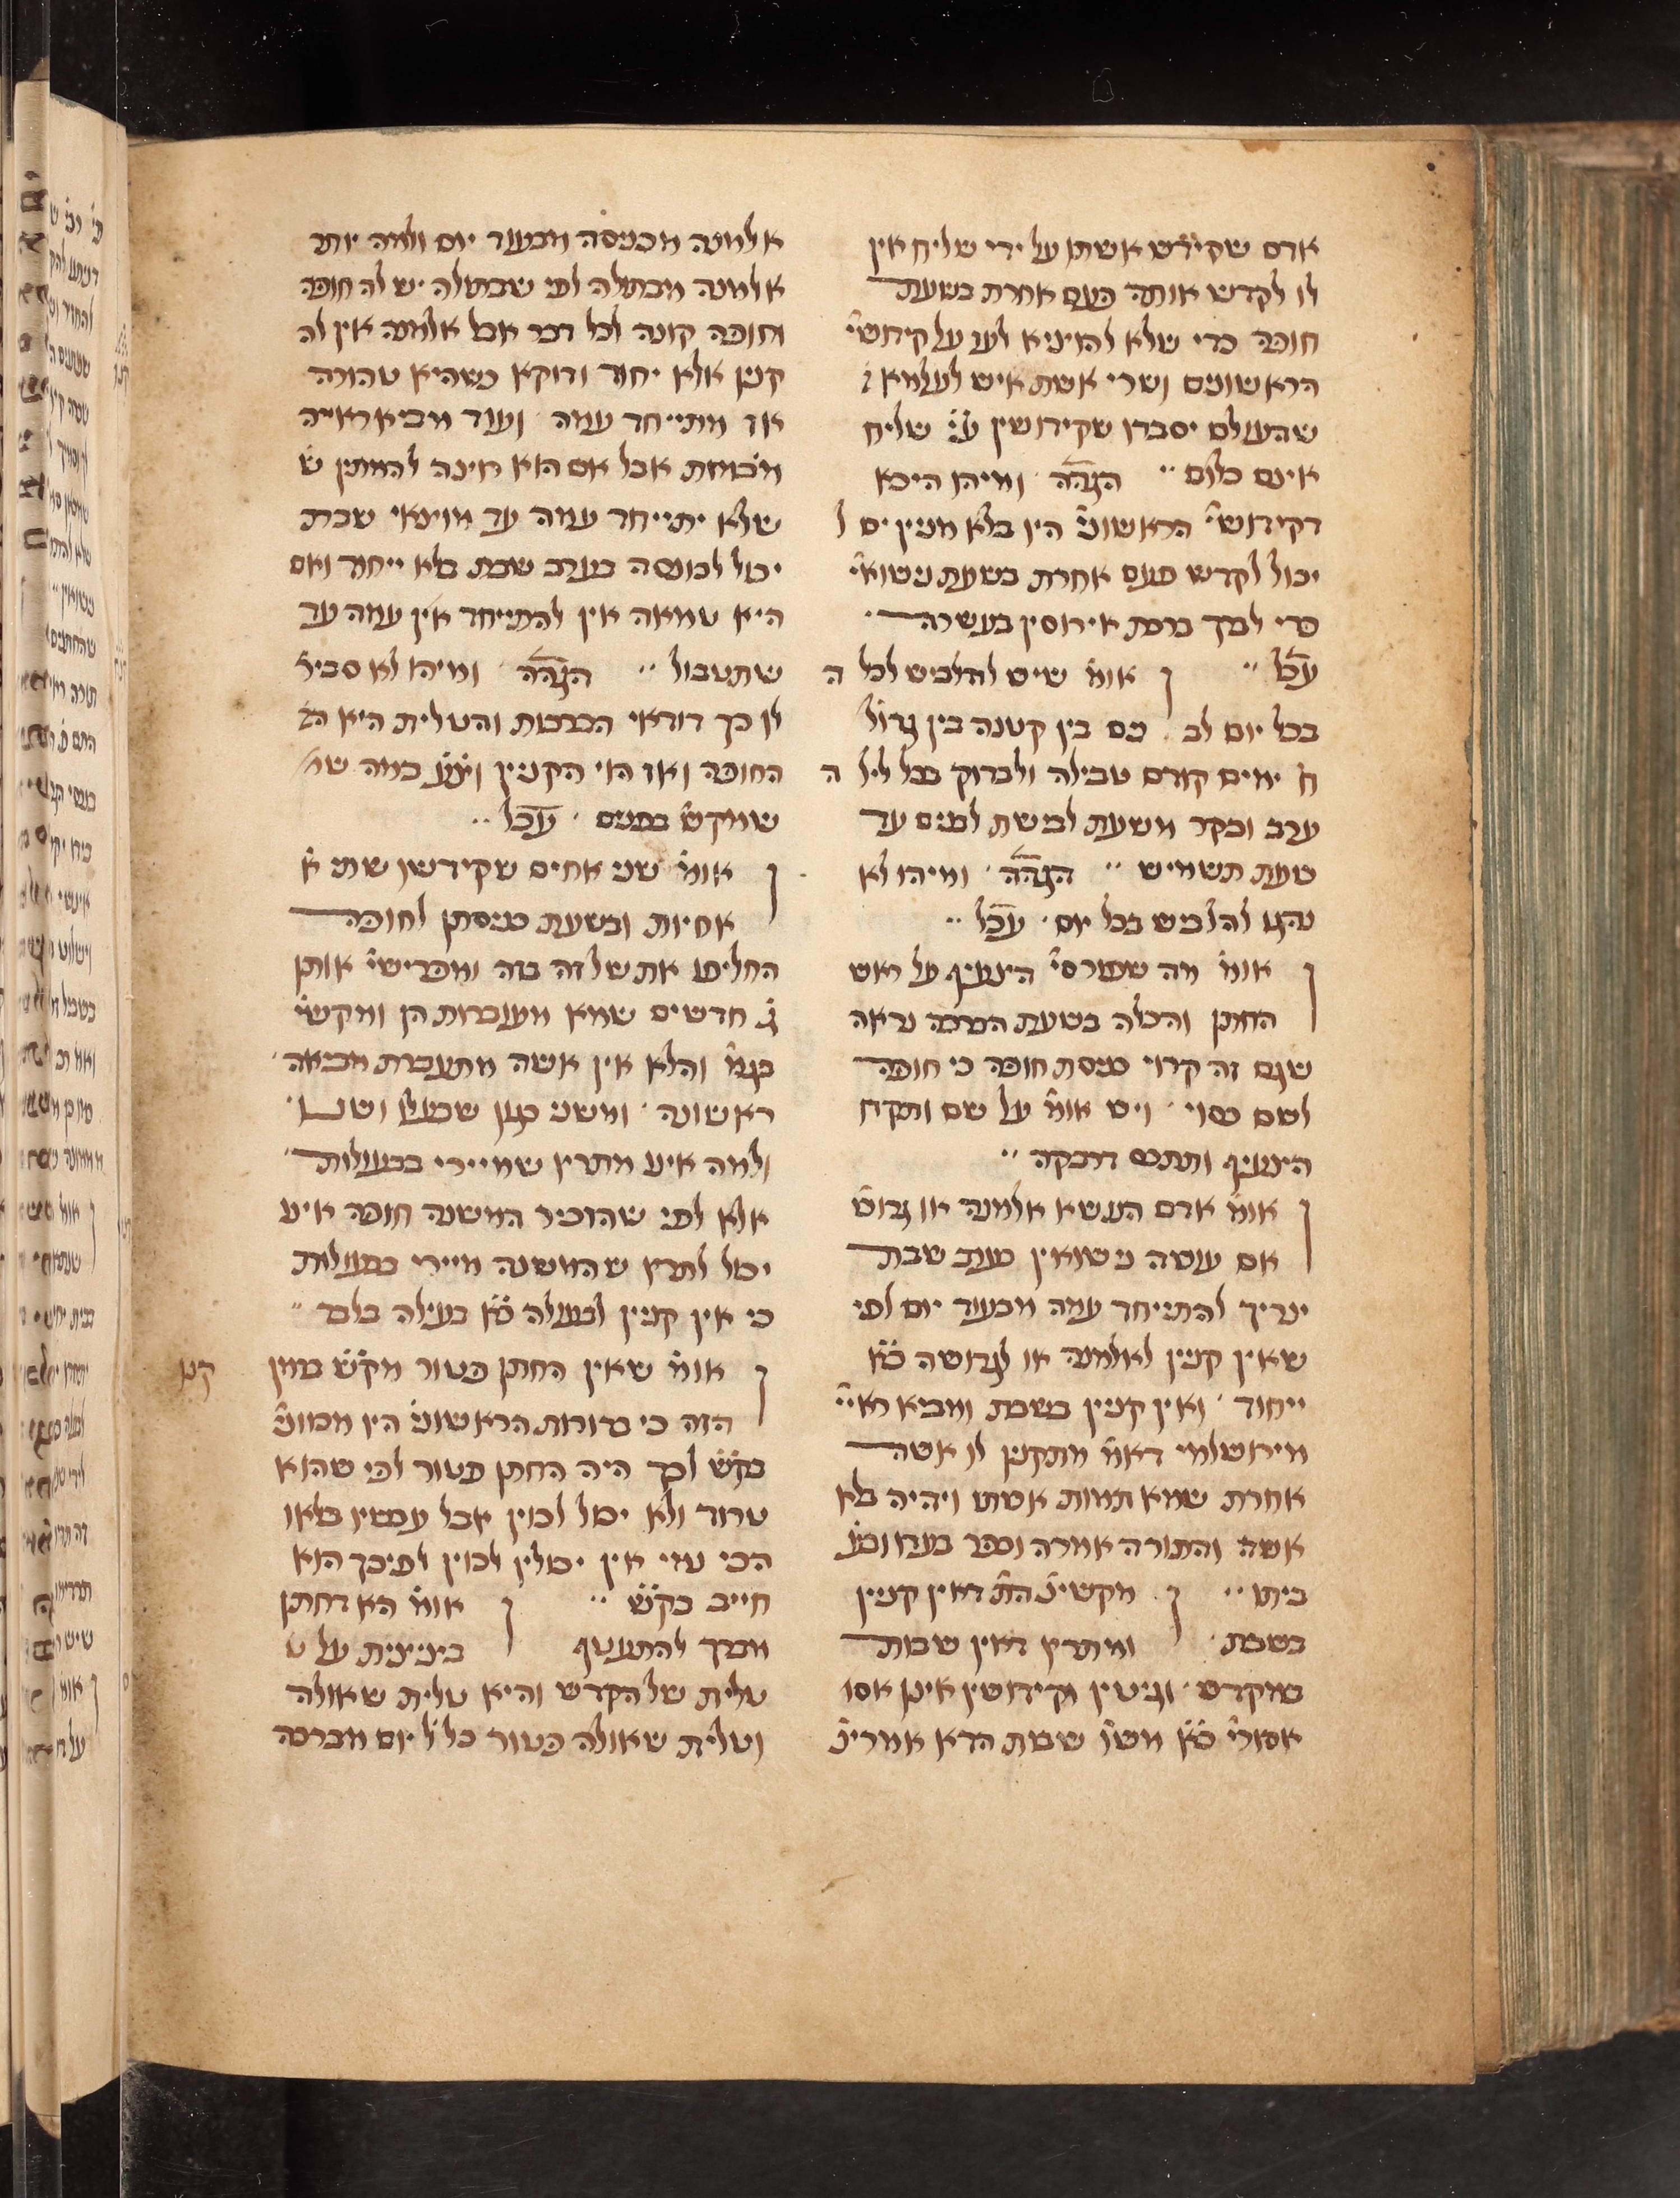 אדם שקידש אשתו על ידי שליח אין
לו לקדש אותה פעם אחרת בשעת
חופה כדי שלא להוציא לעז על קידושי׳
הראשונים ושרי אשת איש לעלמא
שהעולם יסברו שקידושין ע״י שליח
אינם כלום ׳׳ הגהה ׳ ומיהו היכא
דקידושי׳ הראשוני׳ היו בלא מניין
יכול לקדש פעם אחרת בשעת נישואי׳
כדי לברך ברכת אירוסין בעשרה ׳
עכ״ל ׳׳ אומ׳ שיש להלביש לכל
בכל יום לבנים בין קטנה בין גדול׳
ח׳ ימים קודם טבילה ולבדוק בכל
ערב ובקר משעת לבישת לבנים עד
שעת תשמיש ׳׳ הגהה ׳ ומיהו לא
נהגו להלביש בכל יום ׳ עכ״ל ׳׳
אומ׳ מה שפורסי׳ הצעיף על ראש
החתן והכלה בשעת הברכה נראה
שגם זה קרוי כניסת חופה כי חופה
לשם כסוי ׳ ויש אומ׳ על שם ותקח
הצעיף ותתכס דרבקה ׳׳
אומ׳ אדם הנושא אלמנה או גרוש׳
אם עושה נישואין בערב שבת
צריך להתייחד עמה מבעוד יום לפי
שאין קניין לאלמנה או לגרושה כ״א
ייחוד ׳ ואין קניין בשבת ומביא ראיי׳
מירושלמי דאמ׳ מתקנין לו אשה
אחרת שמא תמות אשתו ויהיה בלא
אשה והתורה אמרה וכפר בעדו ובע׳
ביתו ׳׳ מקשי׳ הת׳ דאין קניין
בשבת ׳ ומתרץ דאין שבות
במקדש ׳ וגיטין וקידושין אינן אסו׳
אסורי׳ כ״א משו׳ שבות הדא אמרי׳
אלמנה מכניסה מבעוד יום ולמה יותר
אלמנה מבתולה לפי שבתולה יש לה חופה
וחופה קונה לכל דבר אבל אלמנה אין לה
קניין אלא יחוד ודוקא כשהיא טהורה
אז מתייחד עמה ׳ ועוד מביא ראייה
מוכחת אבל אם הוא רוצה להמתין
שלא יתייחד עמה עד מוצאי שבת
יכול לכונסה בערב שבת בלא ייחוד ואם
היא טמאה אין להתייחד אין עמה עד
שתטבול ׳׳ הגהה ׳ ומיהו לא סביר׳
לן כך דודאי הברכות והטלית היא
החופה ואז הוי הקניין כמה
שמקש׳ בפנים ׳ עכ״ל ׳׳
אומ׳ שני אחים שקידשו שתי
אחיות ובשעת כניסתן לחופה
החליפו את של זה בזה ומפרישי׳ אותן
ג׳ חדשים שמא מעוברות הן ומקשי׳
בגמ׳ והלא אין אשה מתעברת מביאה
ראשונה ׳ ומשני כגון שבעלו ושנו ׳
ולמה אינו מתרץ שמיירי בבעולות ׳
אלא לפי שהזכיר המשנה חופה אינו
יכול לתרץ שהמשנה מיירי בבעולות
כי אין קניין לבעולה כ״א בעילה בלבד ׳׳
אומ׳ שאין החתן פטור מק״ש בזמן
הזה כי בדורות הראשוני׳ היו מכווני׳
בק״ש לכך היה החתן פטור לפי שהוא
טרוד ולא יכול לכוין אבל עכשיו בלאו
הכי נמי אין יכולין לכוין לפיכך הוא
חייב בק״ש ׳׳ אומ׳ הא דחתן
מברך להתעטף בציצית על
טלית של הקדש והיא טלית שאולה
וטלית שאולה פטור כל ל׳ יום מברכה